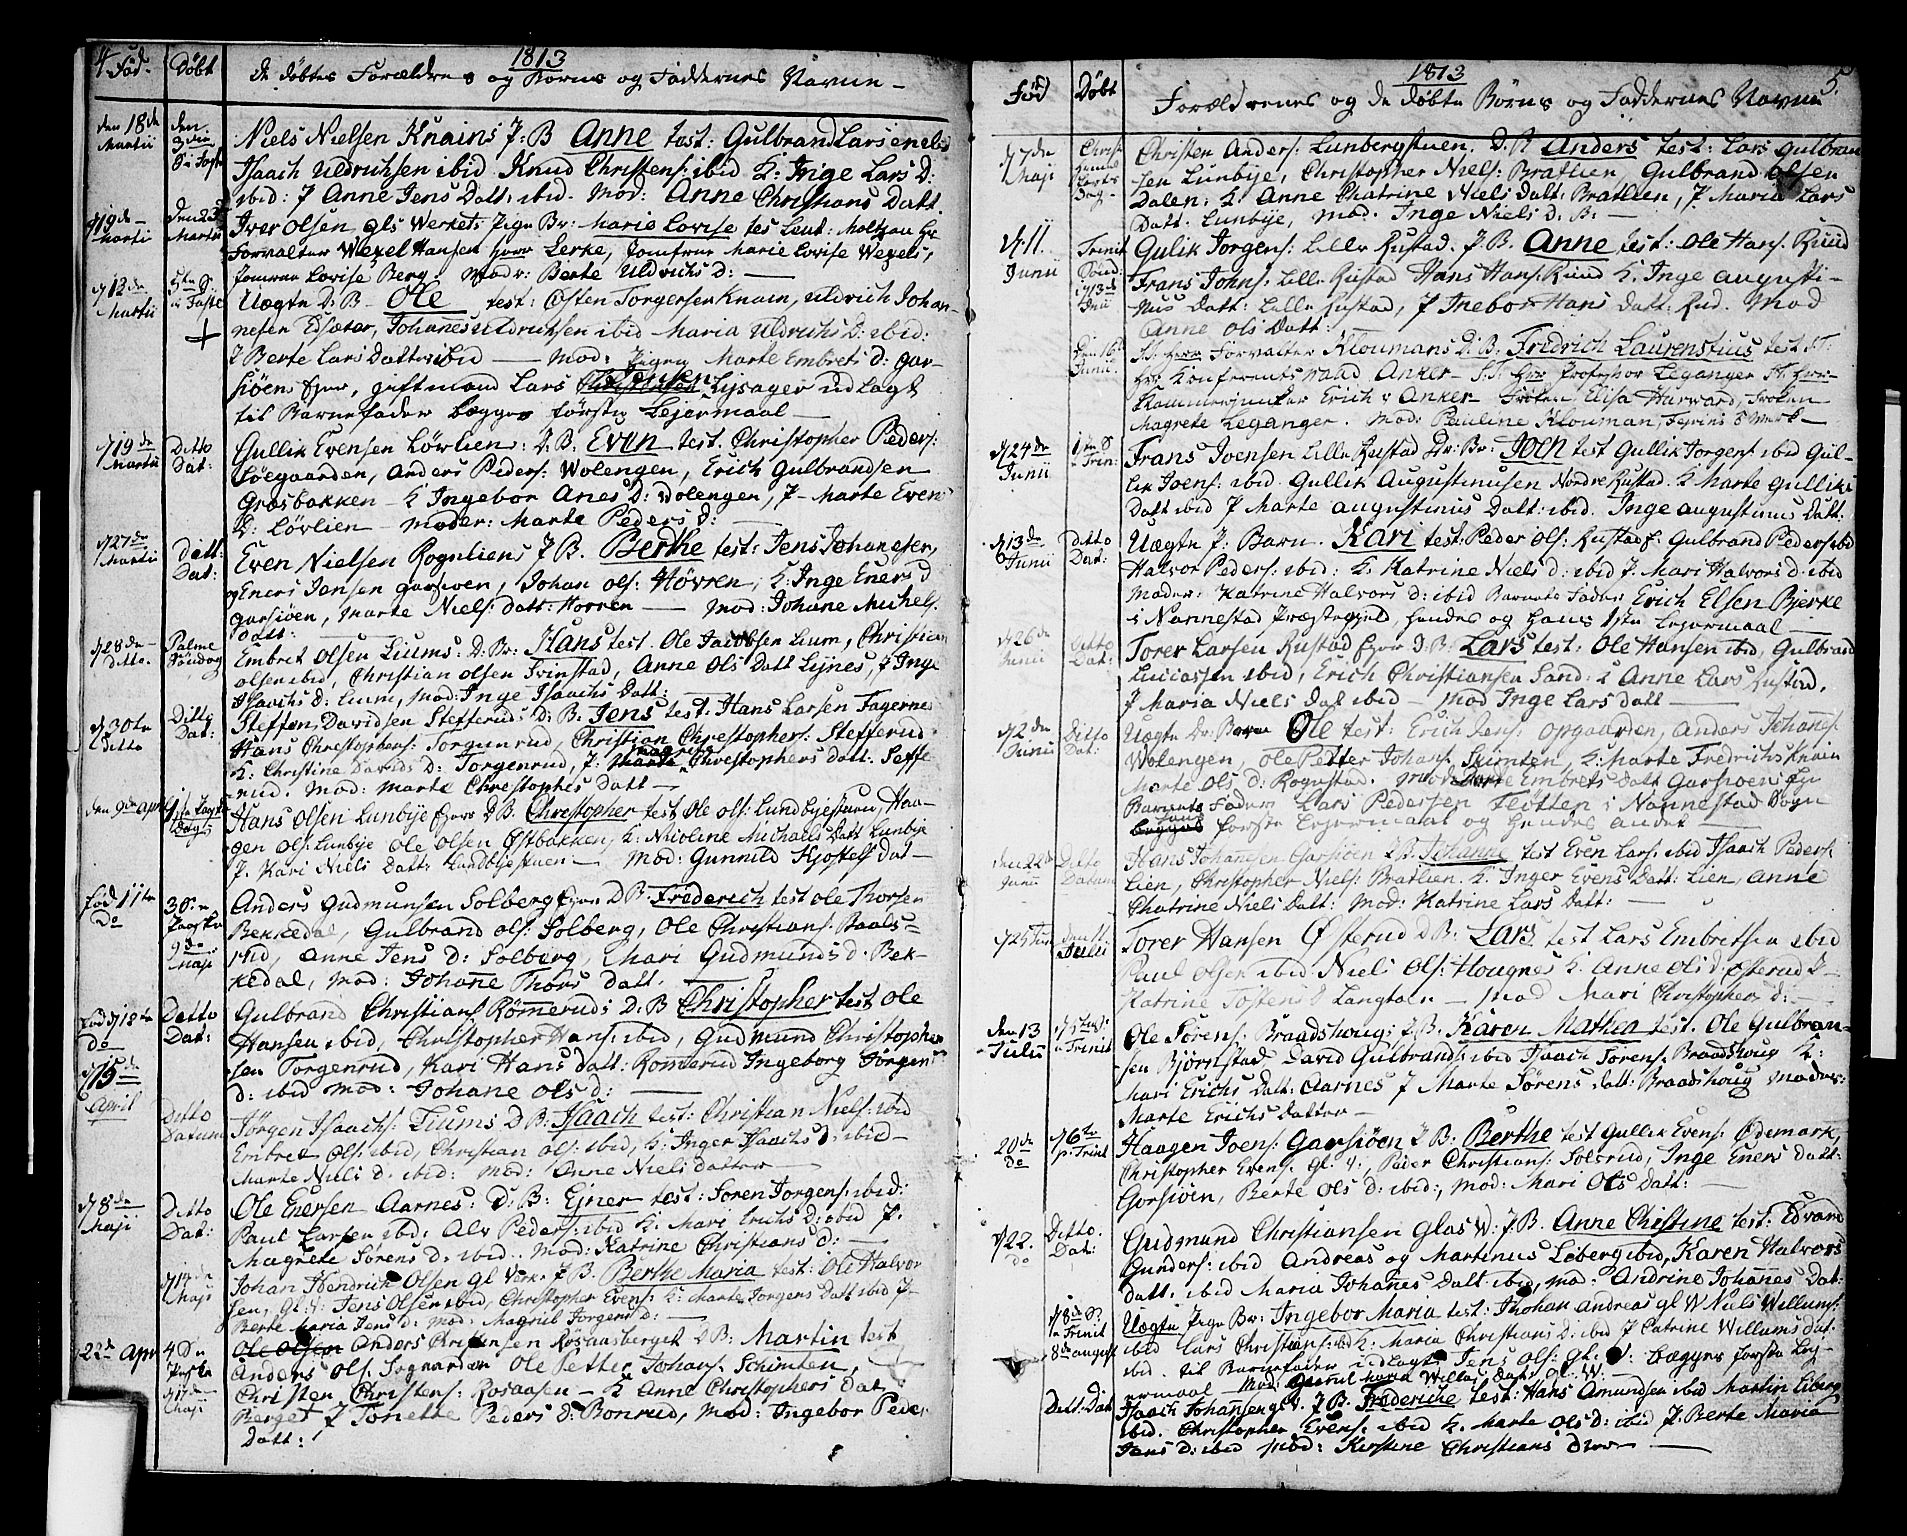 4
1813
Fød. Døbt De døbtes Forældres og Børns og Faddernes Navne
den 18de Martii
Niels Nielsen Knains P: B Anne test: Gulbrand Larsen
Isaach Uldrichsen ibid Knud Christens: ibid K: Inge Lars D:
ibid: P Anne Jens Datt: ibid. Mod: Anne Christians Datt
d 19de Martii den 23de Martii
Iver Olsen Gls Werkets Pige Br: Marie Lovise tes Leut: Moltzau Hr
Forvalter Wexel Hansen Herr Lerke, Jomfrue Marie Lovise Wexels,
Jomfrue Lovise Berg. Modr: Berte Uldrichs D:
d 12de Martii 5te S: i Faste
Uægte D: B Ole test: Østen Torgersen Knain, Uldrich Johan-
nesen Edsæter, Johanes Uldrichsen ibid Maria Uldrichs D: ibid:
P Berte Lars Datter ibid Mod: Pigen Marte Embrets D: Gar-
siøens Eier, giftmand Lars Lysager udlagt
til Barnefader begges første Lejermaal
d 19de Martii Ditto Dat:
Gullik Evensen Løvlien: D: B: Even test. Christopher Peders:
Løegaarden, Anders Peders: Wolengen, Erich Gulbrandsen
Græsbakken K Ingebor Anes D: Wolengen, P Marte Evens
D: Løvlien Moder: Marte Peders D:
d 27de Martii Datt: Dat:
Even Nielsen Rognliens P B. Berthe test: Jens Johanesen,
og Eners Jensen Garsiøen, Johan Ols: Høvren, K: Inge Eners D
Garsiøen, Marte Niels: Datt: Horren Mod: Johane Michels
Datt:
d 28de Ditto Palme Søndag
Embret Olsen Liums: D: Br: Hans test. Ole Jacobsen Lium, Christian
Olsen ibid, Christian Olsen Frinstad, Anne Ols Datt Lijnes, P Inge
Isaachs D: Lium, Mod: Inge Isaachs Datt:
d 30te Ditto Ditto Dat:
Steffen Davidsen Stefferuds D: B. Jens test: Hans Larsen Fagernes
Hans Christophers: Torgenrud, Christian Christophers: Stefferud
K: Christine Davids D: Torgenrud, P: Magrete Christophers Datt: Steffe
rud. Mod: Marte Christophes Datt
den 9de Apr
Hans Olsen Lunbije Eiers D B: Christopher test Ole Ols: Lundbyestuen, Haa-
gen Ols: Lunbije Ole Olsen Østbakken, K: Nicoline Michaels Datt Lunbije
P. Kari Niels Datt: Lundbyestuen Mod: Gunnild Kjostels Dat
fød 11te Do 3 S: e Paaske 9de Maji
Anders Gudmunsen Solberg Eier D B: Friderich test Ole Thorsen
Bekkedal, Gulbrand Ols: Solberg, Ole Christians: Baads-
hid, Anne Jens D: Solberg, Mari Gudmunds D: Bek-
kedal, Mod: Johanne Thors Datt.
Fød d 12te Do Ditto Dat:
Gulbrand Christians: Rømeruds D: B Christopher test Ole
Hansen ibid, Christopher Hans: ibid, Gudmund Christopher
sen Torgenrud, Kari Hans Datt: Romerud Ingeborg Jørgens
D: ibid Mod: Johane Ols D:
d 15de April Ditto Datum
Jørgen Isaachs: Liums D B: Isaach test: Christian Niels: ibid
Embret Ols: ibid, Christian Ols: ibid, K: Inger Isaachs D: ibid
Marte Niels D. ibid: Mod: Anne Niels Datter
d 8de Maji Ditto Dat:
Ole Enersen Aarnes: D: B: Ejner test: Søren Jorgens: ibid:
Paul Larsen ibid: Alv Peders: ibid K: Mari Erichs D: ibid P:
Magrete Sørens D. ibid. Mod: Katrine Christians D:
d 14de Maji
Johan Hendrich Olsen Gl Værk. P B. Berthe Maria test: Ole Halvor
sen, Gl: V: Jens Olsen ibid, Christopher Evens: K: Marte Jorgens Datt ibid P
Berte Maria Jens D: Mod: Magrile Jorgens D:
22de Apr 4 S: e Paske d 17de Maji
Ole Olsen Anders Christensen Rosaasberget D B: Martin test
Anders Ols: Sognarden Ole Petter Johans: Schimten,
Christen Christens: Rosaasen K Anne Christophers Dat.
Berget P Tonette Peders D: Bonrud, Mod: Ingebor Peder
Datt:
1813
5.
Fød Døbt Forældrenes og de døbte Børns og Faddernes Navne
d 7de Maji Christi Himmelfarts Dag
Christen Anders: Lunbergstuen. D: B Anders test: Lars Gulbran
sen Lunbije, Christopher Niels: Bratlien, Gulbrand Olsen
Dalen: K Anne Chatrine Niels Datt: Bratlien, P Maria Lars
Datt: Lunbije, Mod: Inge Niels D: B:
d 11. Junii Trinit Sønd: d 13de Junii
Gulik Jorgens: Lille Rustad. P. B. Anne test: Ole Hans: Ruud
Frans Johns: Lille Rustad Hans Hans: Ruud K: Inge Augusti-
nus Datt: Lille Rustad, P Inebor Hans Datt: Rud. Mod
Anne Ols Datt:
Den 16de Junii
St: Herr Forvalter Kloumans D: B: Fredrich Laurenstius test St:
Hr: Konferentsraad Anker St: Hr Profesor Leganger St Herr
Kammerjunker Erich Anker Frøken Elisa Harward, Frøken
Magrete Leganger. Mod: Pauline Klouman, Feirins Værk
d 24de Junii 1ste S: e Trin:
Frans Joensen Lille Rustad Dr: Br: Joen test Gullik Jorgens: ibid Gul-
lik Joens: ibid Gullik Augustinusen Nordre Rustad. K Marte Gulliks
Datt ibid P Marte Augustinus Datt: ibid. Inge Augustinus Datt:
d 13de Junii Ditto Dat:
Uægte P: Barn. Kari test: Peder Ols: Rustad: Gulbrand Peders ibid
Halvor Peders: ibid: K: Katrine Niels D: ibid P. Mari Halvors D: ibid
Moder: Katrine Halvors D: ibid Barnets Fader Erich Elsen Bjerke
i Nannestad Præstegield, hendes og hans 1ste Lejermaal
d 26de Junii Ditto Dat:
Torer Larsen Rustad Eier D: B: Lars test: Ole Hansen ibid, Gulbrand
Lucassen ibid, Erich Christiansen Sand: K Anne Lars Rustad,
P Maria Niels Dat ibid Mod Inge Lars Datt
d 2de Junii Ditto Dat:
Uægte Dr: Barn Ole test: Erich Jens: Opgaarden, Anders Johanes:
Wolengen, Ole Petter Johans: Skimten, K: Marte Fredrichs Knain
Marte Ols D: Rognstad. Mod Marte Embrets Datt Garsiøens
Barnets Fader Lars Pedersen Fløtten i Nannestad Sogn
hans første Lejermaal og hendes andet
den 22de Junii Ditto Datum
Hans Johannesen Garsiøen P B. Johanne test Even Lars: ibid Isaach Peders:
Lien, Christopher Niels: Bratlien. K: Inger Evens Datt: Lien, Anne
Chatrine Niels Datt: Mod: Katrine Lars Datt:
d 25 Jun den 11. Julii
Torer Hansen Østerud D B: Lars test Lars Embretsen ibid
Paul Olsen ibid Niels Ols: Hougnes K: Anne Ols D: Østerud P
Katrine Tostens D Langton Mod Mari Christophers D:
den 13 Julii d 5te S: e Trinit
Ole Sørens: Braadshoug: P B: Karen Mathea test. Ole Gulbran-
sen Bjørnstad David Gulbrands: ibid Isaach Sørens: Braadshoug K:
Mari Erichs Datt: Aarnes P Marte Sørens Datt: Braadshoug Moder:
Marte Erichs Datter
20de Do d 6te p: Trinit
Haagen Joens: Garsiøen P B: Berthe test Gullik Evens: Ødemark,
Christopher Evens: Gl: V:, Peder Christians: Solsrud, Inge Eners Datt:
Gorsiøen, Berte Ols D: ibid:, Mod: Mari Ols Datt:
d 22. Do Ditto. Dat:
Gudmund Christiansen Glas W: P. B. Anne Chistine test: Edvard
Gunders: ibid Andreas og Martinus Liberg ibid, Karen Halvors
Datt: ibid Maria Johanes Datt ibid, Mod: Andrine Johanes Dat:
d 8de S: e Trinit 8de August
Uægte Pige Br: Ingebor Maria test: Johan Andreas Gl W Niels Willums:
ibid Lars Christians: ibid K: Maria Christians D: ibid P Catrine Willums Dat:
ibid. til Barnefader udlagt Jens Ols: Gl: V: begges første Lej-
ermaal Mod: Maria Datt Gl: W:
Dett: Dat
Isaach Johansen Gl V. P B. Frideriche test: Hans Amundsen ibid Martin Liberg
ibid. Christopher Evens: ibid K. Marte Ols D: ibid P. Berte Maria
Jens D: ibid Mod: Kirstine Christians Dtter